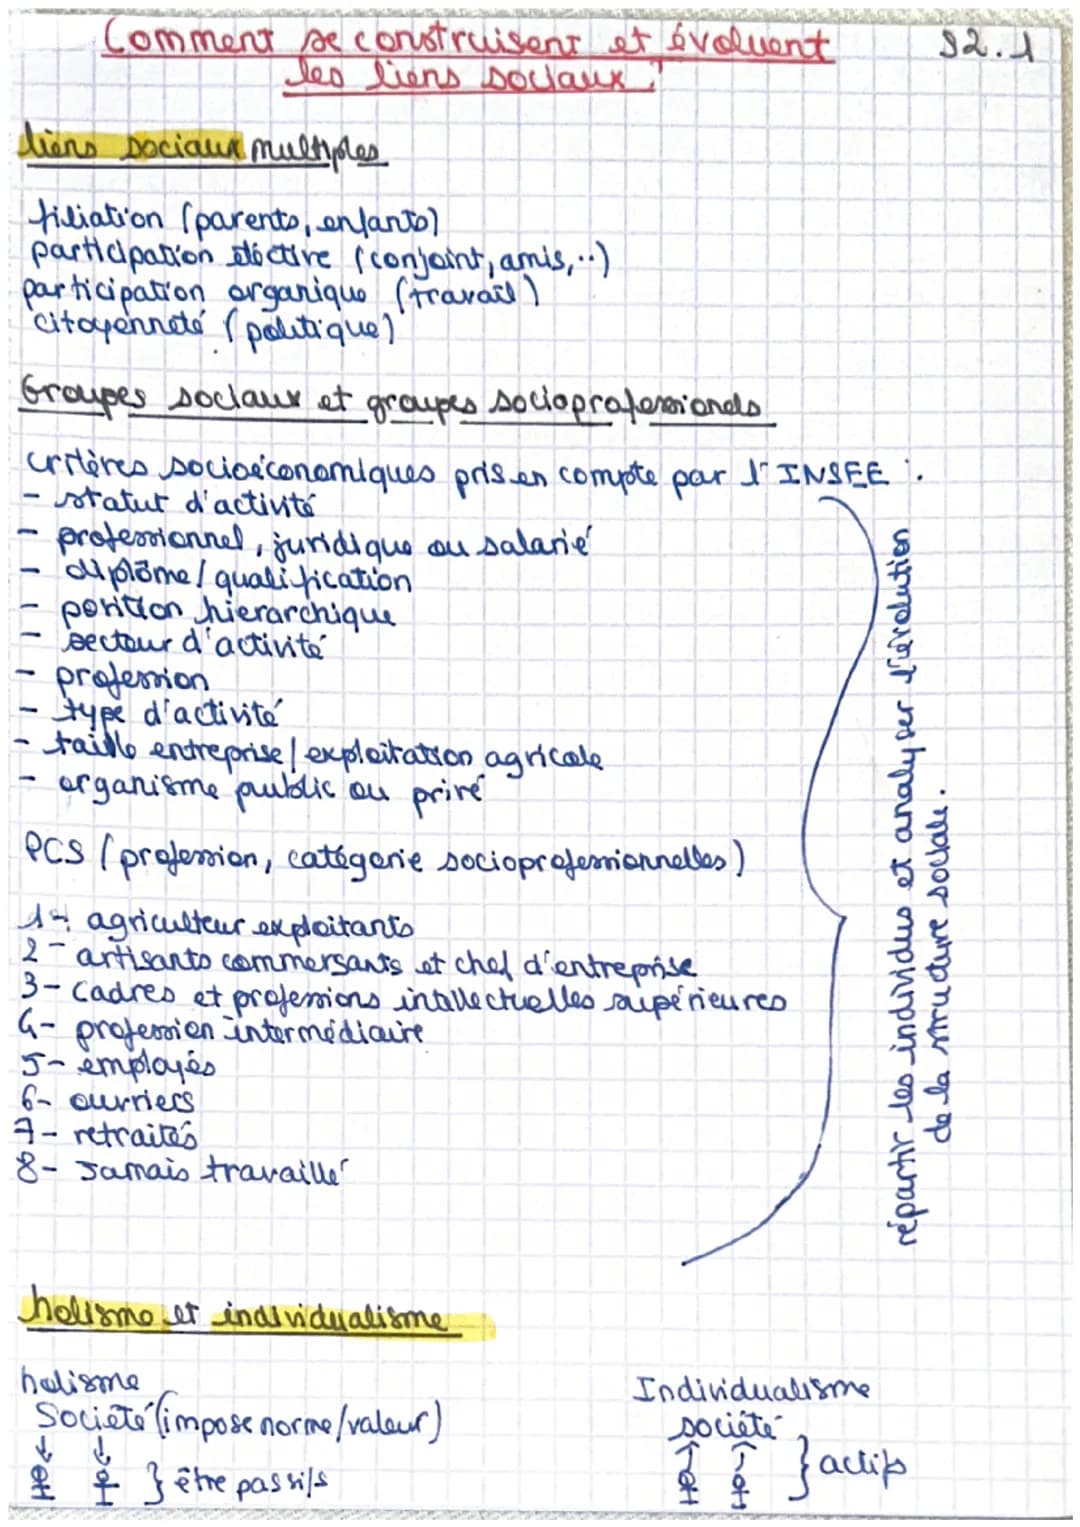 Comment se construisent et évoluent S2.1
les liens sociaux ?
liens sociaux multiples
filiation (parents, enfants)
participation éléctive (conjoint, amis,..)
participation organique (travail)
citoyenneté (politique)
Groupes sociaux et groupes socioprofessionels
critères socioéconomiques pris en compte par l'INSEE :
- statut d'activité
- professionnel, juridique ou salarié
- diplôme / qualification
- position hierarchique
- secteur d'activité
- profession
- type d'activité
- taille entreprise / exploitation agricole
- organisme public ou privé
PCS (profession, catégorie socioprofessionnelles)
1- agriculteur exploitants
2- artisants commersants et chef d'entreprise
3- Cadres et professions intellectuelles supérieures
4- profession intermédiaire
5- employés
6- ouvriers
7- retraités
8- Jamais travaillé
répartir les individus et analyser l'évolution
de la structure sociale.
holisme et individualisme
holisme
Société (impose norme/valeur)
} être passifs
Individualisme
société
} actifs